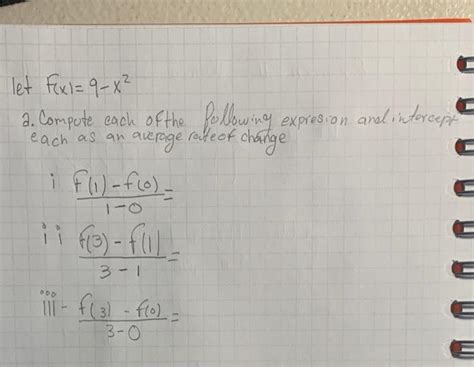 let F(x) = 9 - x²
a. Compute each of the following expresion and intercept
each as an average rate of change
i f(1) - f(0) / 1 - 0 =
ii f(3) - f(1) / 3 - 1 =
iii - f(3) - f(0) / 3 - 0 =